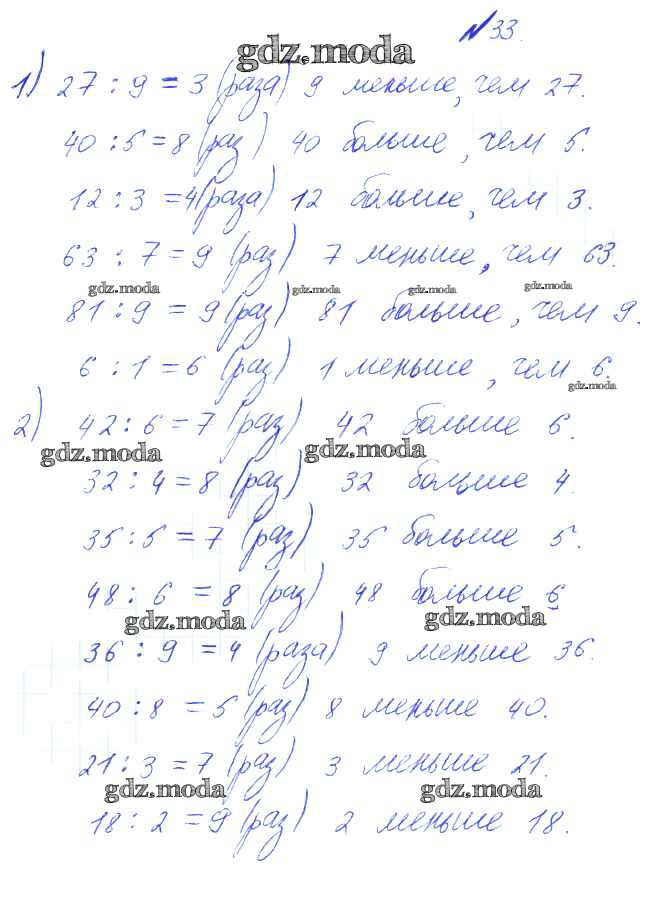 №33.
gdz.moda
1) 27 : 9 = 3 (раза) 9 меньше, чем 27.
40 : 5 = 8 (раз) 40 больше, чем 5.
12 : 3 = 4 (раза) 12 больше, чем 3.
63 : 7 = 9 (раз) 7 меньше, чем 63.
gdz.moda gdz.moda gdz.moda gdz.moda
81 : 9 = 9 (раз) 81 больше, чем 9.
6 : 1 = 6 (раз) 1 меньше, чем 6.
gdz.moda
2) 42 : 6 = 7 (раз) 42 больше 6.
gdz.moda gdz.moda
32 : 4 = 8 (раз) 32 больше 4.
35 : 5 = 7 (раз) 35 больше 5.
48 : 6 = 8 (раз) 48 больше 6
gdz.moda gdz.moda
36 : 9 = 4 (раза) 9 меньше 36.
40 : 8 = 5 (раз) 8 меньше 40.
21 : 3 = 7 (раз) 3 меньше 21.
gdz.moda gdz.moda
18 : 2 = 9 (раз) 2 меньше 18.